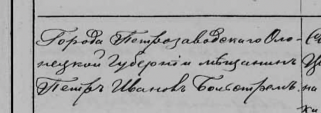 Города Петрозаводскаго Оло-
нецкой Губернiи мѣщанинъ
Петръ Ивановъ